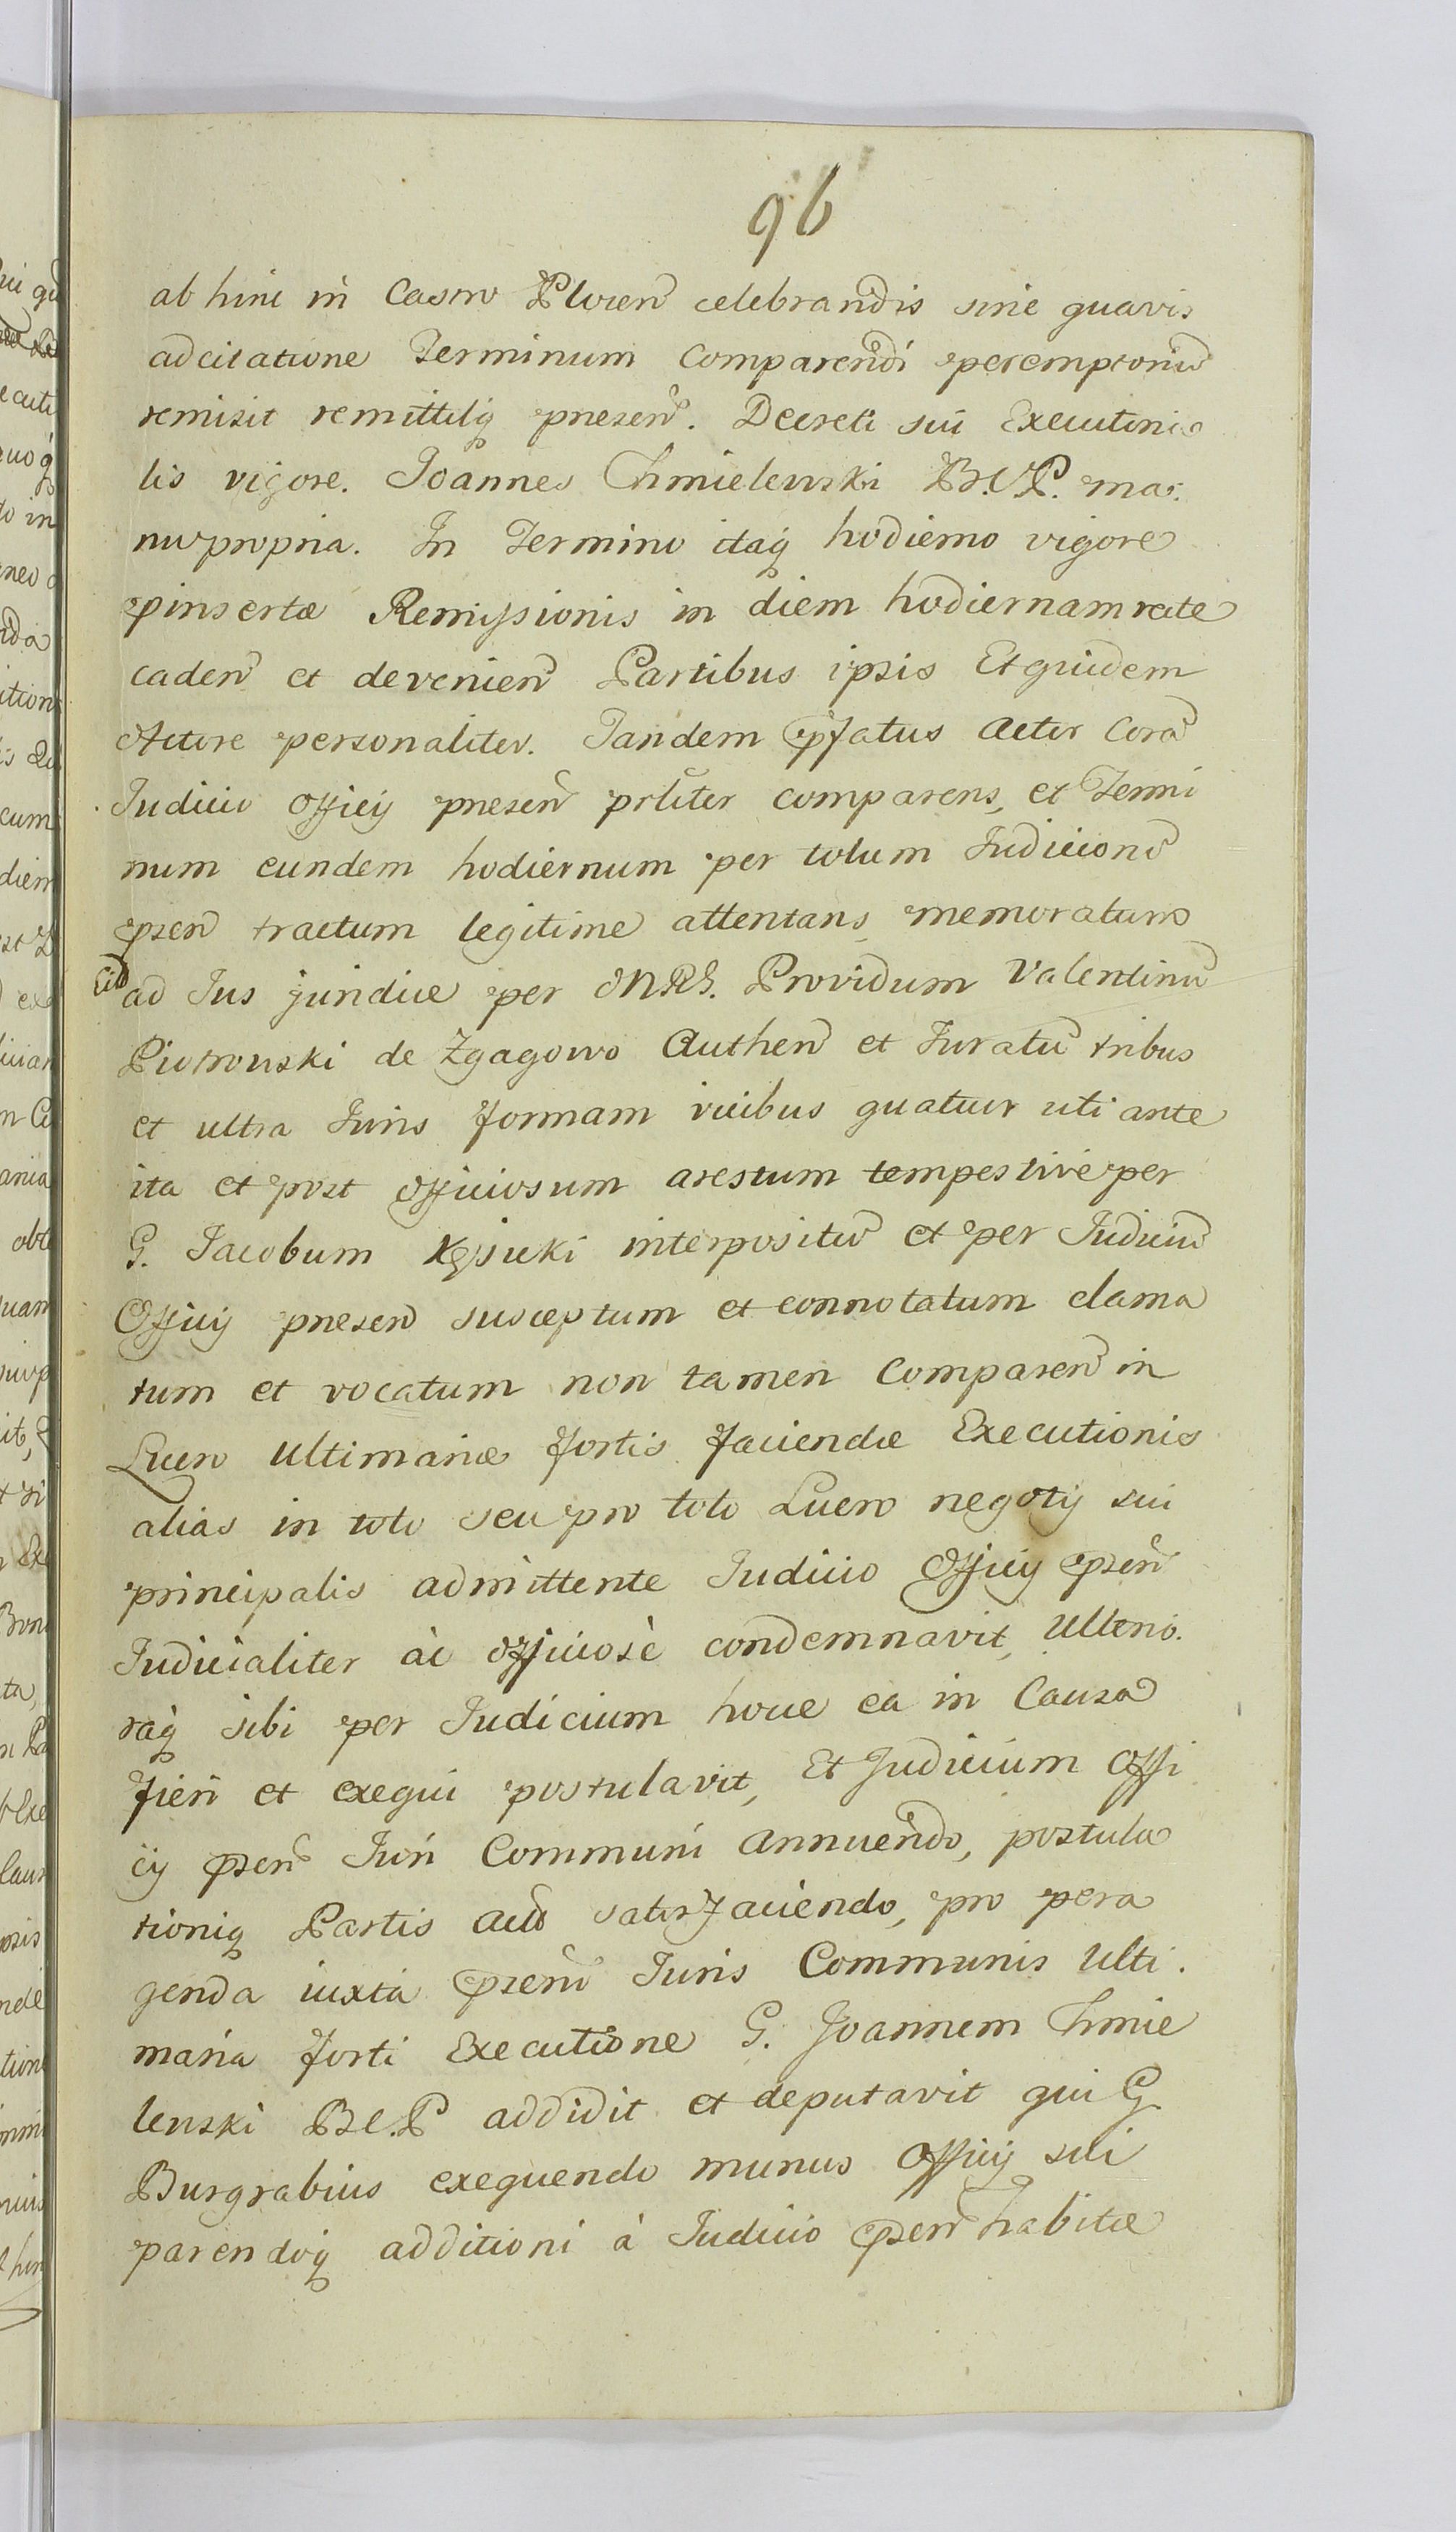 96
ab hinc in Castro Plocen celebrandis sine quavis
adcitatione Terminum Comparendi peremptoriu
remisit remittitq presen. Decreti sui Executiona
lis vigore. Joannes Chmielewski B.C.P. ma:
nu propria. In Termino itaq hodierno vigore
pinsertæ Remissionis in diem hodiernam recte
caden et devenien Partibus ipsis Et quidem
Actore personaliter. Tandem pfatus Actor Corã
Judicio Officij presen prliter comparens, et Termi
num eundem hodiernum per totum Judicione
psen tractum legitime attentans memoratum
Cit
ad Jus juridice per MRS. Providum Valentinu
Piotrowski de Zgagowo Authen et Juratu tribus
et ultra Juris formam vicibus quatuor uti ante
ita et post officiosum arestum tempestive per
G. Jacobum interpositu et per Judiciu
Officij presen susceptum et connotatum clama
tum et vocatum non tamen Comparen in
Lucro Ultimariæ fortis faciendæ Executionis
alias in toto seu pro toto Lucro negotij sui
principalis admittente Judicio Officij psen
Judicialiter ac officiosè condemnavit, Ulterio.
raq sibi per Judicium hocce ea in Causa
fieri et exequi postulavit, Et Judicium Offi
cij psen Juri Communi annuendo, postula
tioniq Partis Act satisfaciendo, pro pera
genda iuxta psen Juris Communis Ulti.
maria forti Executione G. Joannem Chmie
lewski B.C.P addidit et deputavit qui G
Burgrabius exequendo munus Officij sui
parendoq additioni à Judicio psen habitæ